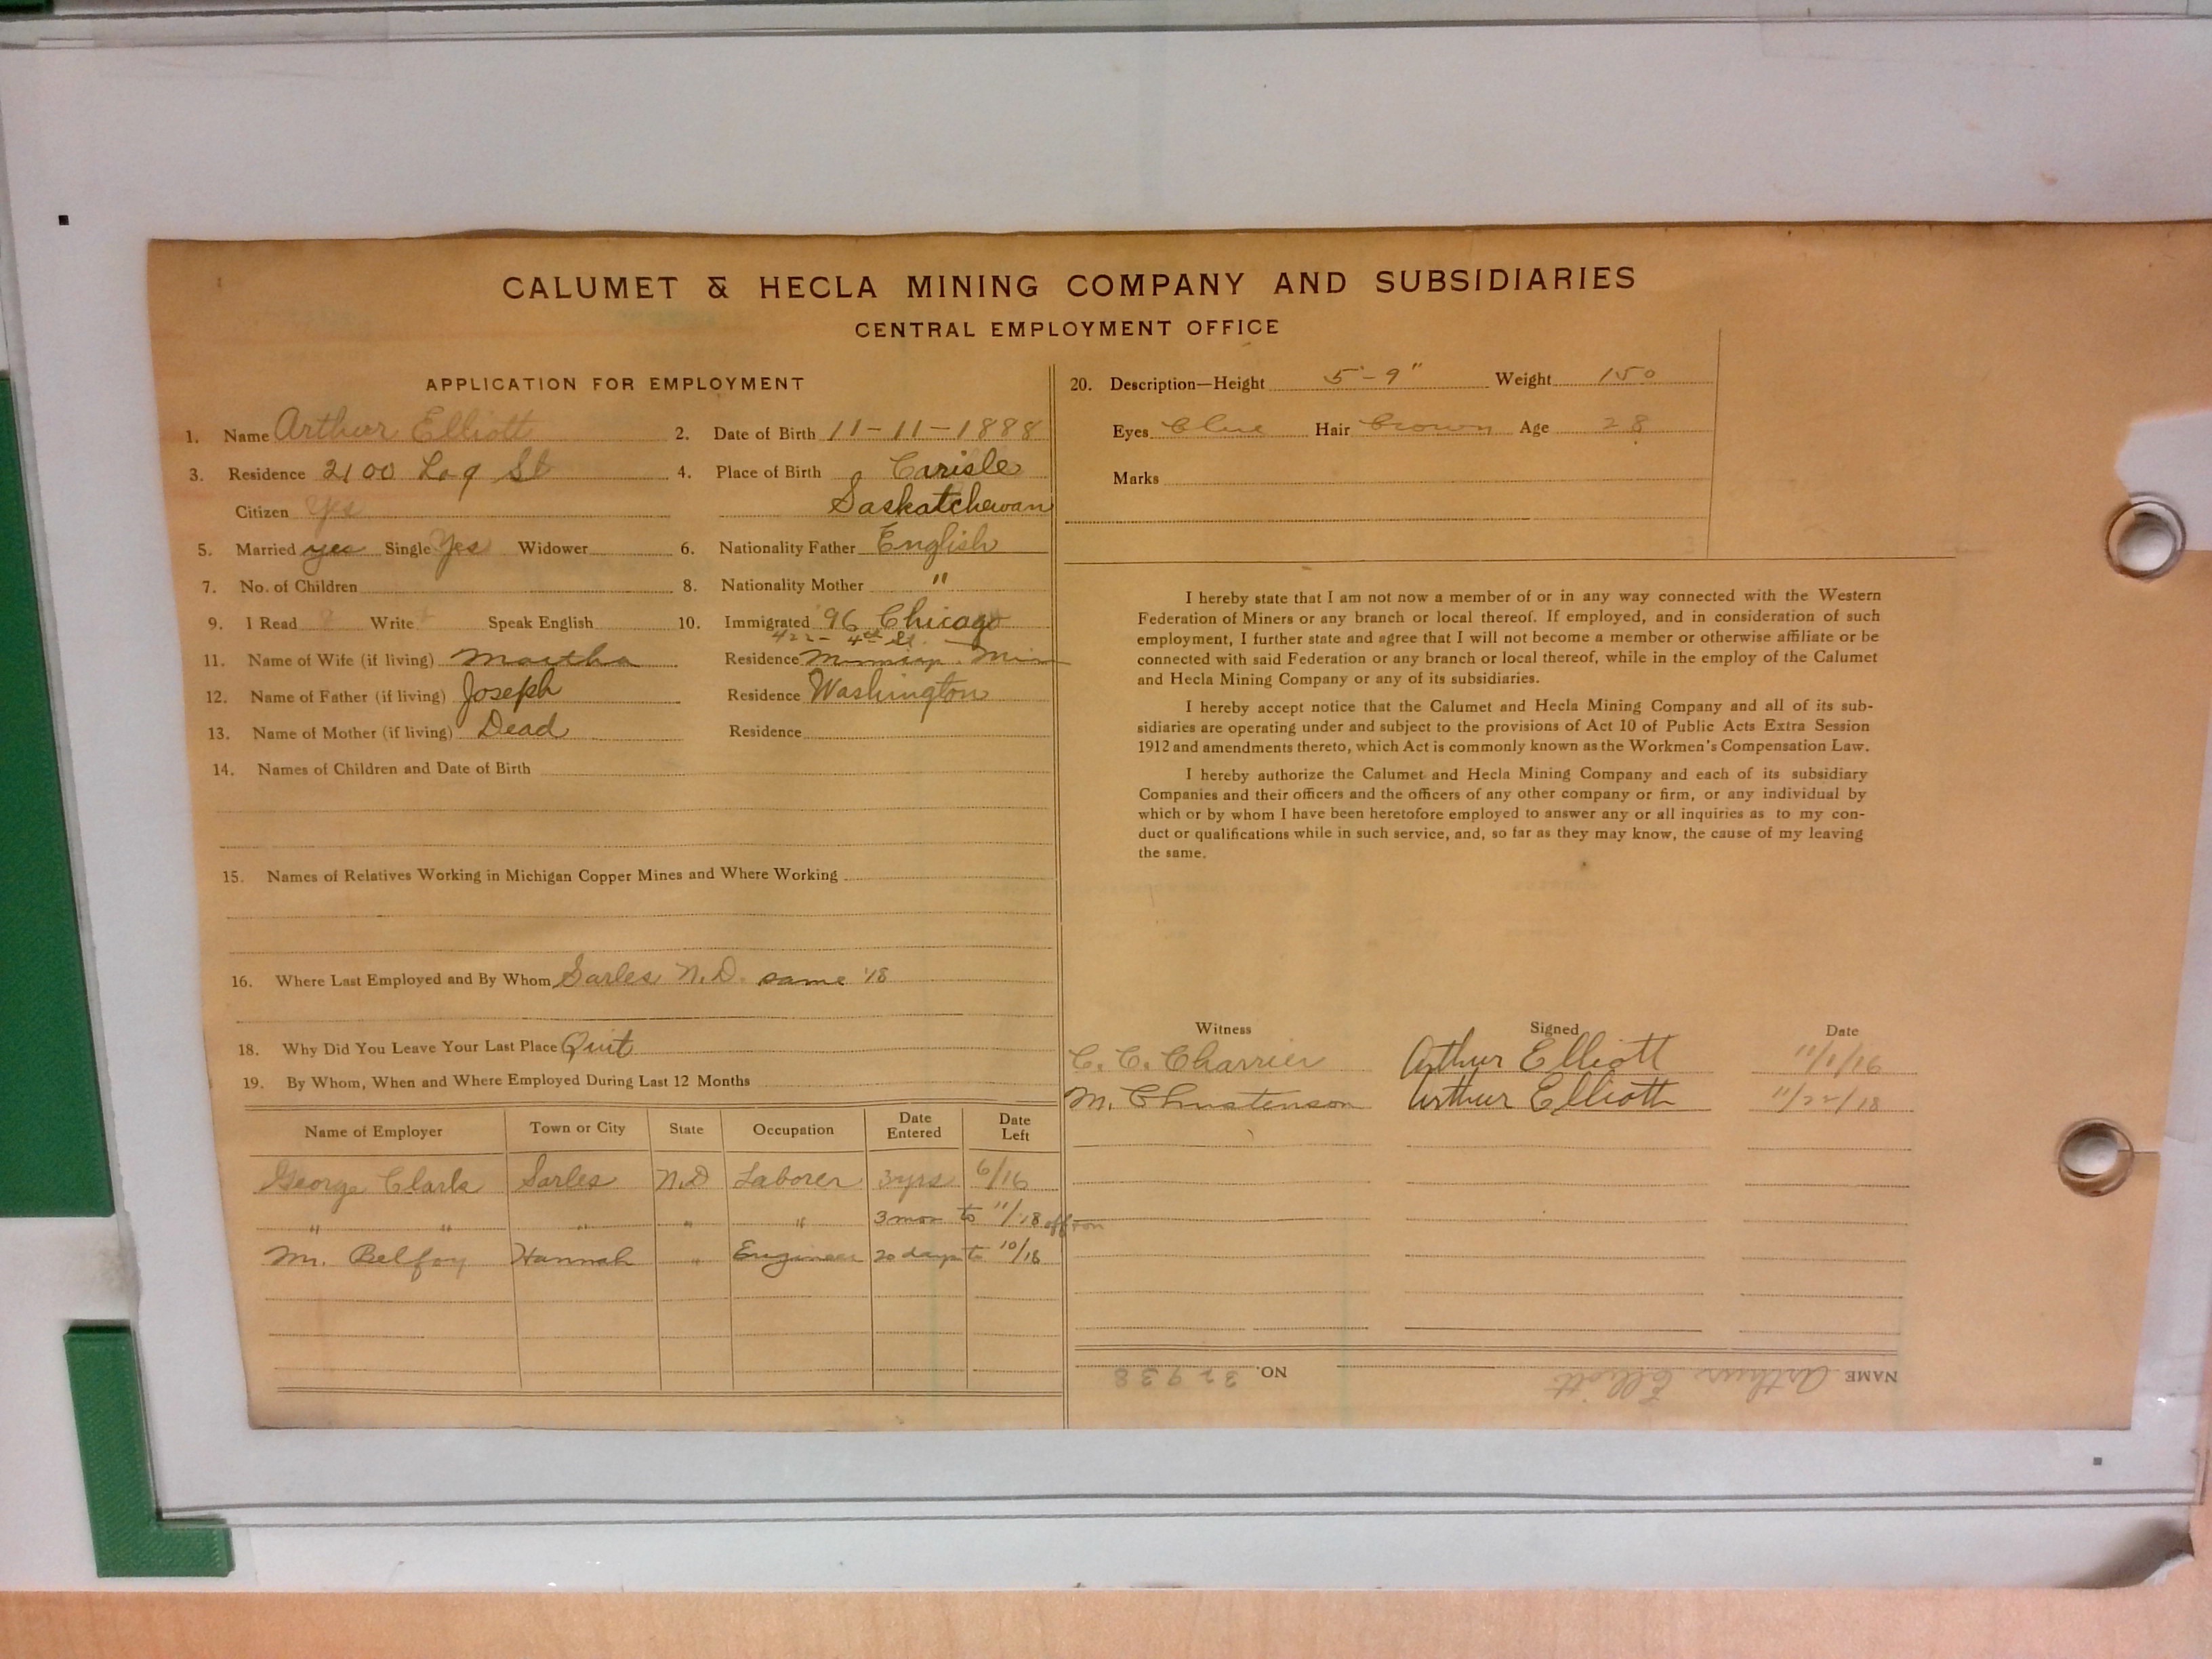 CALUMET & HECLA MINING COMPANY AND SUBSIDIARIES
CENTRAL EMPLOYMENT OFFICE
APPLICATION FOR EMPLOYMENT
1. Name Arthur Elliott 2. Date of Birth 11-11-1888
3. Residence 2100 Log St 4. Place of Birth Carisle
Citizen Yes Saskatchewan
5. Married yes Single Yes Widower 6. Nationality Father English
7. No. of Children 8. Nationality Mother "
9. I Read Write Speak English 10. Immigrated '96 Chicago
422 - 4th St.
11. Name of Wife (if living) Martha Residence
12. Name of Father (if living) Joseph Residence Washington
13. Name of Mother (if living) Dead Residence
14. Names of Children and Date of Birth
15. Names of Relatives Working in Michigan Copper Mines and Where Working
16. Where Last Employed and By Whom Sarles N.D. same '18
18. Why Did You Leave Your Last Place Quit
19. By Whom, When and Where Employed During Last 12 Months
Name of Employer Town or City State Occupation Date Entered Date Left
George Clark Sarles N.D Laborer 3yrs 6/16
" " " " " 3 mon to 11/18 off + on
Mr. Belfoy Hannah " Engineer 20 days to 10/18
20. Description—Height 5'-9" Weight 150
Eyes Blue Hair Brown Age 28
Marks
I hereby state that I am not now a member of or in any way connected with the Western
Federation of Miners or any branch or local thereof. If employed, and in consideration of such
employment, I further state and agree that I will not become a member or otherwise affiliate or be
connected with said Federation or any branch or local thereof, while in the employ of the Calumet
and Hecla Mining Company or any of its subsidiaries.
I hereby accept notice that the Calumet and Hecla Mining Company and all of its sub-
sidiaries are operating under and subject to the provisions of Act 10 of Public Acts Extra Session
1912 and amendments thereto, which Act is commonly known as the Workmen's Compensation Law.
I hereby authorize the Calumet and Hecla Mining Company and each of its subsidiary
Companies and their officers and the officers of any other company or firm, or any individual by
which or by whom I have been heretofore employed to answer any or all inquiries as to my con-
duct or qualifications while in such service, and, so far as they may know, the cause of my leaving
the same.
Witness Signed Date
C. C. Charrier Arthur Elliott 11/1/16
M. Christenson Arthur Elliott 11/22/18
NAME Arthur Elliott NO. 32938